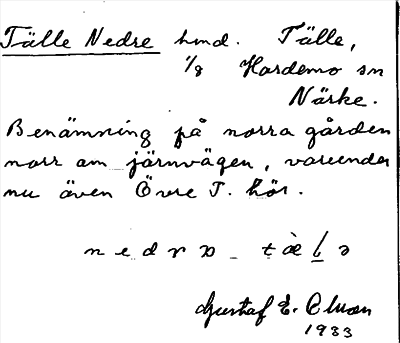 Tälle Nedre hmd. Tälle,
1/8 Hardemo sn
Närke.
Benämning på norra gården
norr om järnvägen, varunder
nu även Övre T. hör.
n e d r ɒ - t ä̀ l ə
Gustaf E. Olsson
1933